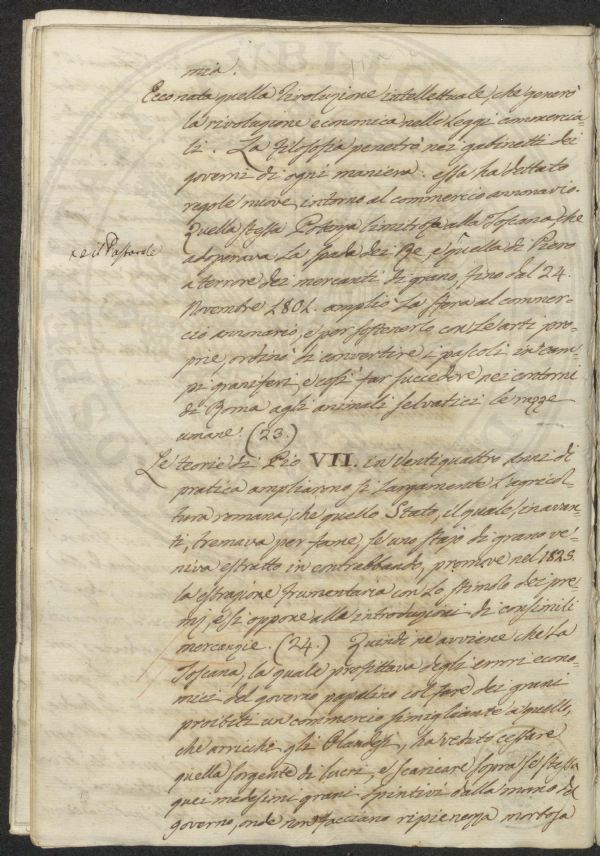 mia.
Ecco nata quella rivoluzione intellettuale, che generò
la rivoluzione economica nelle Leggi commercia-
li. La Filosofia penetrò nei gabinetti dei
governi di ogni maniera: essa ha dettato
regole nuove intorno al commercio annonario.
Quella stessa Potenza limitrofa alla Toscana, che
adoperava la spada dei Re, e quella di Piero
x e il Pastorale
a terrore dei mercanti di grano, fino dal 24.
Novembre 1801. ampliò la sfera al commer-
cio annonario, e per sostenerlo con le arti pro-
prie, ordinò di convertire i pascoli in cam-
pi graniferi, e così far succedere nei contorni
di Roma agli animali selvatici le razze
umane. (23.)
Le teorie di Pio VII. in ventiquattro anni di
pratica ampliarono sì largamente l'agricol-
tura romana, che quello Stato, il quale, in avan-
ti, tremava per fame, se uno stajo di grano ve-
niva estratto in contrabbando, promove nel 1823.
la estrazione frumentaria con lo stimolo dei pre-
mj, e si oppone alla introduzioni di consimili
mercanzie. (24.) Quindi ne avviene che la
Toscana, la quale profittava degli errori econo-
mici del governo papalino col fare dei grani
proibiti un commercio simigliante a quello,
che arricchì gli Olandesi, ha veduto cessare
quella sorgente di lucri, e scaricare sopra se stessa
quei medesimi grani spintivi dalla mano del
governo, onde non facciano ripienezza morbosa